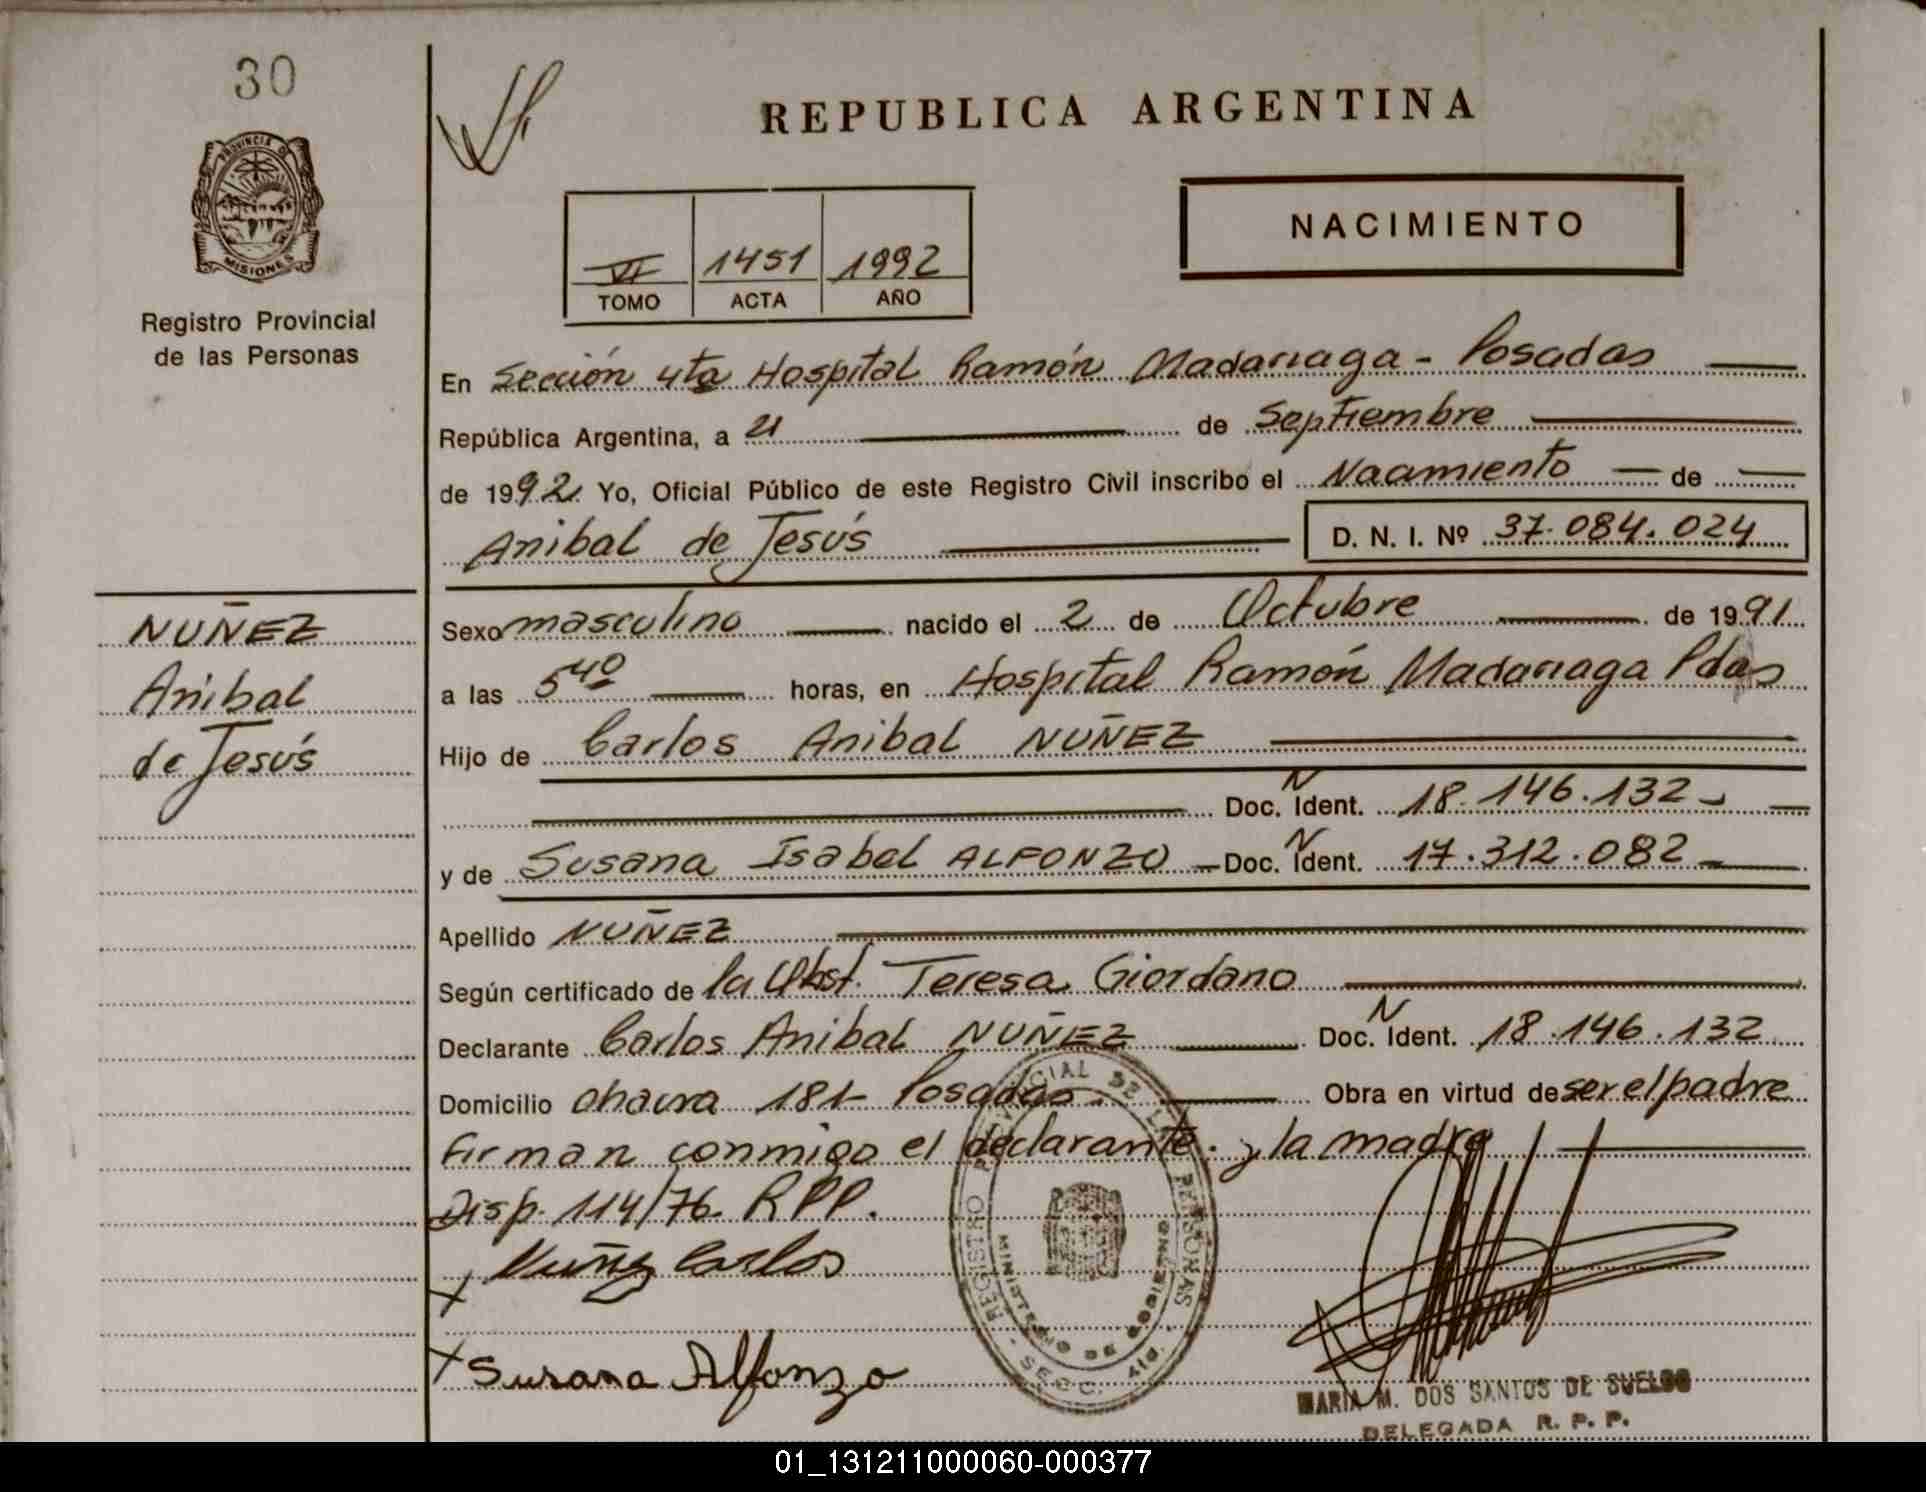 30
PROVINCIA DE
MISIONES
Registro Provincial
de las Personas
REPUBLICA ARGENTINA
NACIMIENTO
VI 1451 1992
TOMO ACTA AÑO
En Sección 4ta Hospital Ramón Madariaga - Posadas
República Argentina, a 21 de Septiembre
de 1992 Yo, Oficial Público de este Registro Civil inscribo el Nacimiento de
Anibal de Jesús D. N. I. Nº 37.084.024
NUÑEZ
Anibal
de Jesús
Sexo masculino nacido el 2 de Octubre de 1991
a las 5 40 horas, en Hospital Ramón Madariaga Pdas
Hijo de Carlos Anibal NUÑEZ
Doc. N Ident. 18.146.132
y de Susana Isabel ALFONZO Doc. N Ident. 17.312.082
Apellido NUÑEZ
Según certificado de la Obst. Teresa Giordano
Declarante Carlos Anibal NUÑEZ Doc. N Ident. 18.146.132
Domicilio chacra 181 Posadas. Obra en virtud de ser el padre
Firman conmigo el declarante. y la madre
Disp. 114/76 RPP.
x Nuñez Carlos
x Susana Alfonzo
REGISTRO PROVINCIAL DE LAS PERSONAS
MINISTERIO DE GOBIERNO
SECC. 4ta.
MARIA M. DOS SANTOS DE SUELDO
DELEGADA R. P. P.
01_131211000060-000377